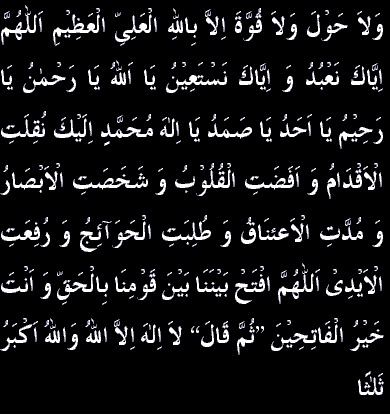 وَلاَ حَوْلَ وَلاَ قُوَّةَ اِلاَّ بِاللهِ الْعَلِىِّ الْعَظِيْمِ اَللّٰهُمَّ
اِيَّاكَ نَعْبُدُ وَ اِيَّاكَ نَسْتَعِيْنُ يَا اَللهُ يَا رَحْمٰنُ يَا
رَحِيْمُ يَا اَحَدُ يَا صَمَدُ يَا اِلٰهَ مُحَمَّدٍ اِلَيْكَ نُقِلَتِ
الْاَقْدَامُ وَ اَفَضَتِ الْقُلُوْبُ وَ شَخَصَتِ الْاَبْصَارُ
وَ مُدَّتِ الْاَعْنَاقُ وَ طُلِبَتِ الْحَوَآئِجُ وَ رُفِعَتِ
الْاَيْدِىْ اَللّٰهُمَّ افْتَحْ بَيْنَنَا بَيْنَ قَوْمِنَا بِالْحَقِّ وَ اَنْتَ
خَيْرُ الْفَاتِحِيْنَ ”ثُمَّ قَالَ“ لاَ اِلٰهَ اِلاَّ اللهُ وَاللهُ اَكْبَرُ
ثَلٰثًا